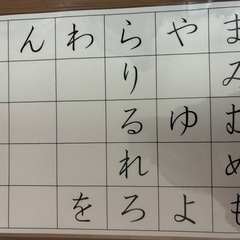 まみむめも
やゆよ
らりるれろ
わを
ん